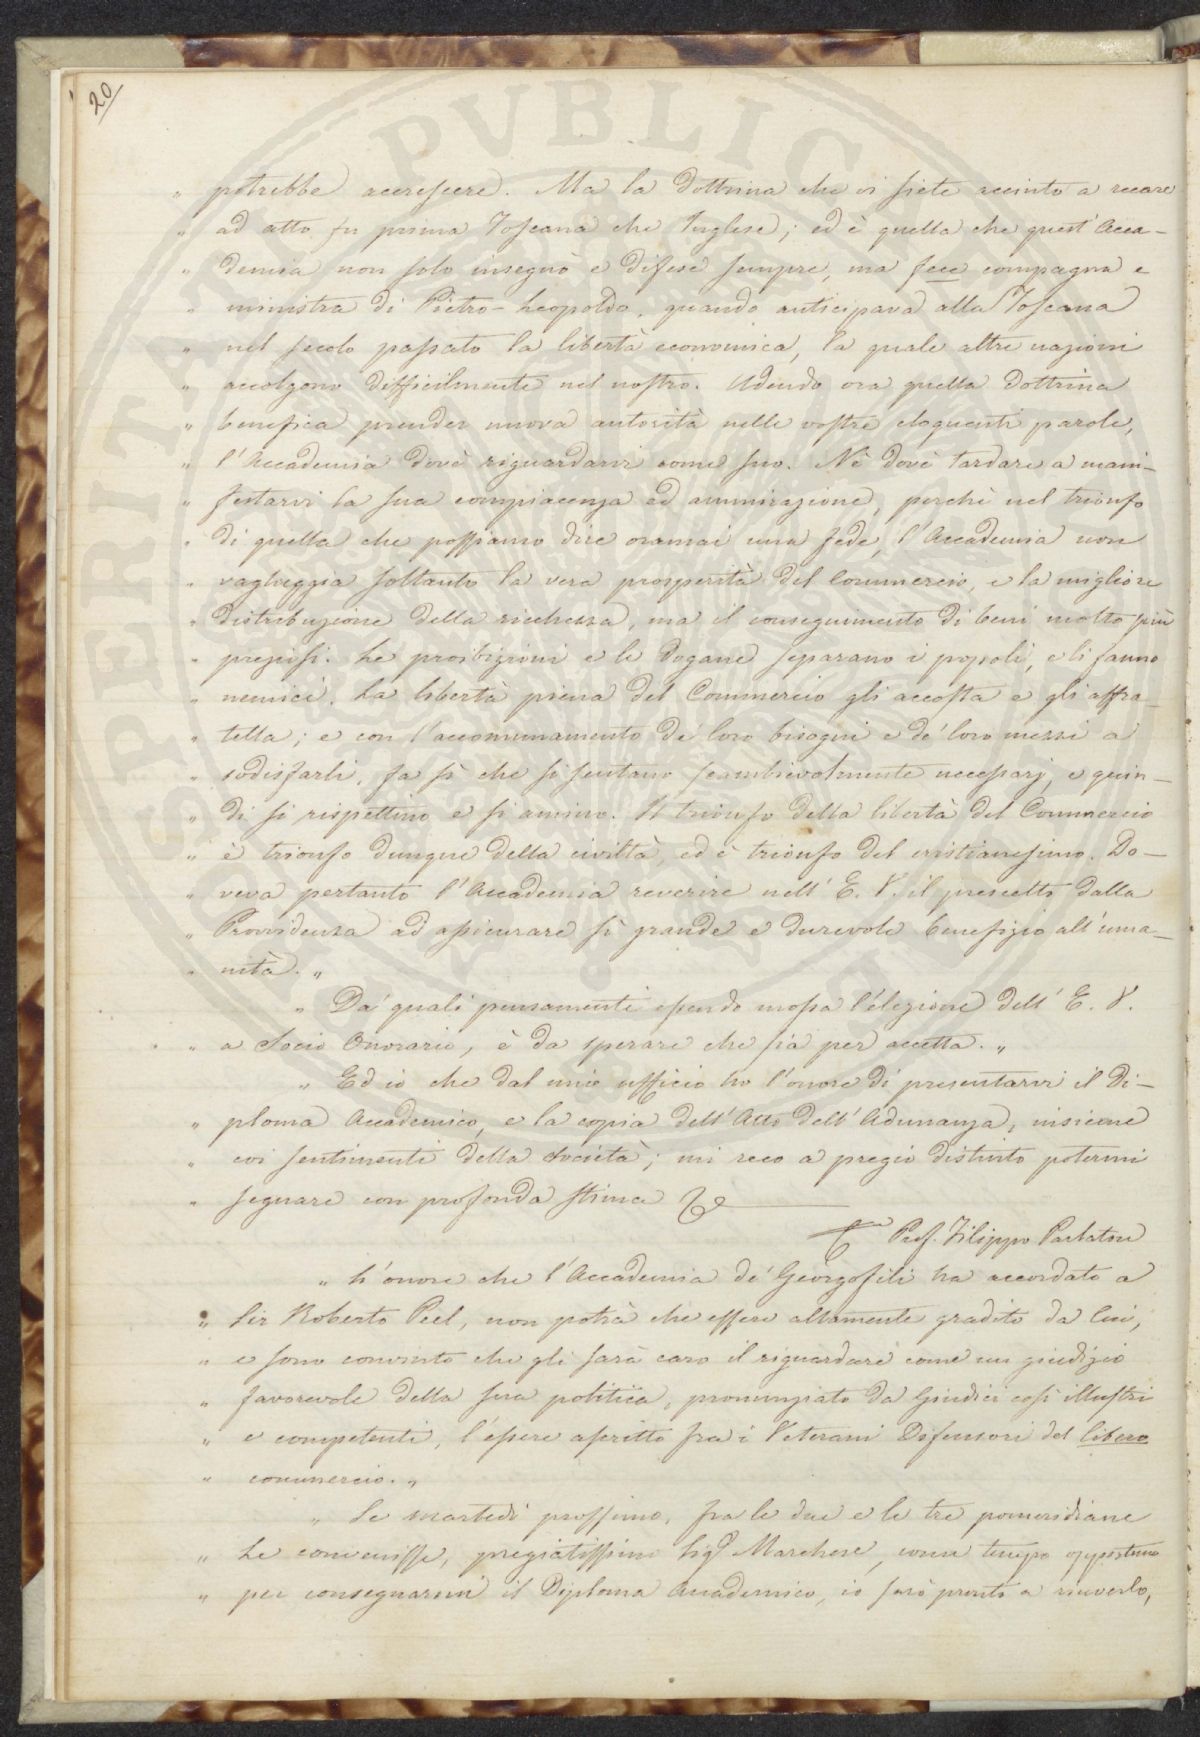 20
" potrebbe accrescere. Ma la dottrina che vi siete accinto a recare
" ad atto fu prima Toscana che Inglese; ed è quella che quest'Acca-
" demia non solo insegnò e difese sempre, ma fece compagna e
" ministra di Pietro-Leopoldo, quando anticipava alla Toscana
" nel secolo passato la libertà economica, la quale altre nazioni
" accolgono difficilmente nel nostro. Udendo ora quella dottrina
" benefica prender nuova autorità nelle vostre eloquenti parole,
" l'Accademia dovè riguardarvi come suo. Nè dovè tardare a mani-
" festarvi la sua compiacenza ed ammirazione, perchè nel trionfo
" di quella che possiamo dire oramai una fede, l'Accademia non
" vagheggia soltanto la vera prosperità del Commercio, e la migliore
" distribuzione della ricchezza, ma il conseguimento di beni molto più
" preziosi. Le proibizioni e le dogane separano i popoli, e li fanno
" nemici. La libertà piena del Commercio gli accosta e gli affra-
" tella; e con l'accomunamento de' loro bisogni e de' loro mezzi a
" sodisfarli, fa sì che si sentano scambievolmente necessarj, e quin-
" di si rispettino e si amino. Il trionfo della libertà del Commercio
" è trionfo dunque della civiltà, ed è trionfo del cristianesimo. Do-
" veva pertanto l'Accademia reverire nell'E. V. il prescelto dalla
" Provvidenza ad assicurare sì grande e durevole benefizio all'uma-
" nità. "
" Da' quali pensamenti essendo mossa l'elezione dell'E. V.
" a Socio Onorario, è da sperare che sia per accetta. "
" Ed io che dal mio ufficio ho l'onore di presentarvi il Di-
" ploma Accademico, e la copia dell'Atto dell'Adunanza, insieme
" coi sentimenti della Società; mi reco a pregio distinto potermi
" segnare con profonda stima
Prof. Filippo Parlatore
" L'onore che l'Accademia de' Georgofili ha accordato a
" Sir Roberto Peel, non potrà che essere altamente gradito da lui,
" e sono convinto che gli sarà caro il riguardare come un giudizio
" favorevole della sua politica, pronunziato da Giudici così illustri
" e competenti, l'essere ascritto fra i Veterani Difensori del libero
" commercio. "
" Se martedì prossimo, fra le due e le tre pomeridiane
" Le convenisse, pregiatissimo Sigr Marchese, come tempo opportuno
" per consegnarmi il Diploma Accademico, io sarò pronto a riceverlo,
PVBLICA
SPERITATI